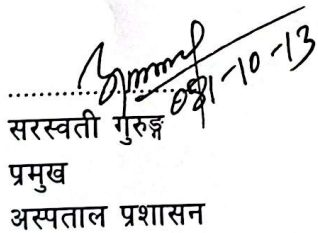 ..................
081-10-13
सरस्वती गुरुङ्ग
प्रमुख
अस्पताल प्रशासन